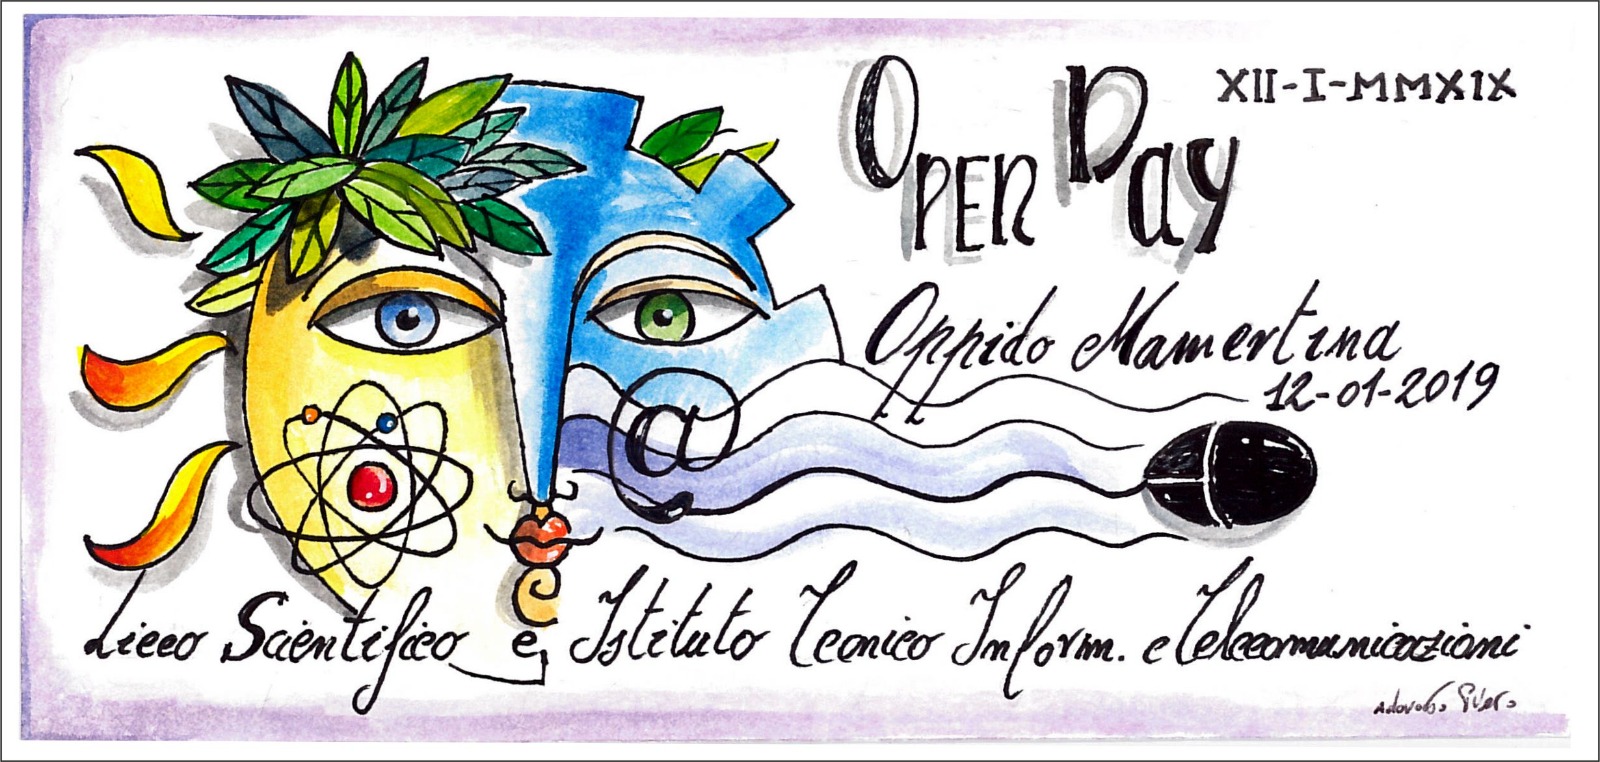 OPEN DAY
XII-I-MMXIX
Oppido Mamertina
12-01-2019
@
Liceo Scientifico e Istituto Tecnico Inform. e Telecomunicazioni